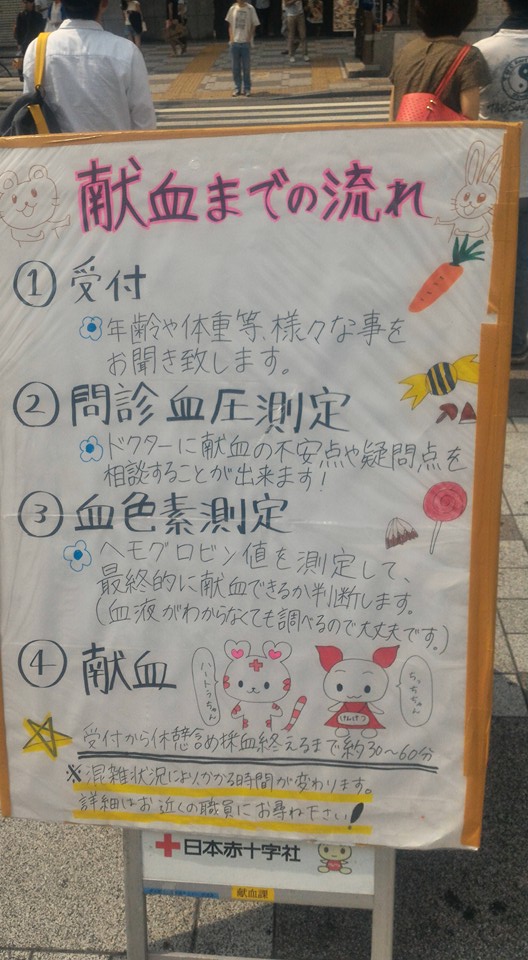 献血までの流れ
① 受付
年齢や体重等、様々な事を
お聞き致します。
② 問診 血圧測定
ドクターに献血の不安点や疑問点を
相談することが出来ます!
③ 血色素測定
ヘモグロビン値を測定して、
最終的に献血できるか判断します。
(血液がわからなくても調べるので大丈夫です。)
④ 献血
ハートラちゃん
けんけつ
ちっちちゃん
受付から休憩含め採血終えるまで約30〜60分
※混雑状況によりかかる時間が変わります。
詳細はお近くの職員にお尋ね下さい!
日本赤十字社
献血課